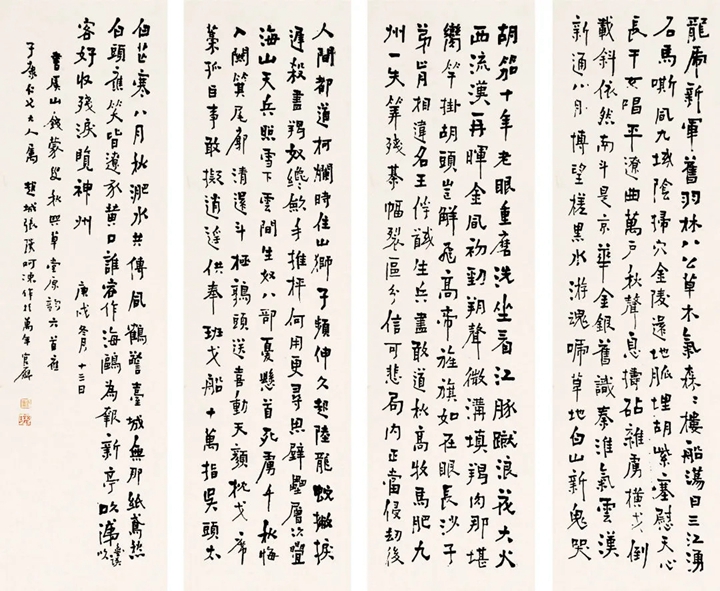 龍虎新軍舊羽林八公草木氣森々樓船蕩日三江湧
石馬嘶風九域陰掃穴金陵還地脈埋胡紫塞慰天心
長干女唱平遼曲萬戶秋聲息擣砧雜虜橫戈倒
載斜依然南斗是京華金銀舊識秦淮氣雲漢
新通八月博望槎黑水游魂啼草地白山新鬼哭
胡笳十年老眼重磨洗坐看江豚蹴浪花大火
西流漢再暉金風初動朔聲微溝填羯肉那堪
臠竿掛胡頭豈解飛高帝旌旗如在眼長沙子
弟肯相違名王俘馘生兵盡敢道秋高牧馬肥九
州一失算殘棊幅裂區分信可悲局內正當侵劫後
人間都道柯爛時住山獅子頻伸久起陸龍蛇撇捩
遲殺盡羯奴纔斂手推枰何用更尋思壁壘層次疊
海山天兵照雪下雲間生奴八部憂懸首死虜千秋悔
入關箕尾廓清還斗極鶉頭送喜動天顏枕戈席
藁孤臣事敢擬逍遙供奉班戈船十萬指吳頭太
白芒寒八月秋淝水共傳風鶴警臺城無那紙鳶愁
白頭應笑皆遼豕黃口誰容作海鷗為報新亭吹涕
客好收殘淚覽神州
庚戌冬月十三日
書虞山錢蒙叟秋興草堂原韵六首應
子康仁兄大人屬 趙城張呵凍作於萬年官廨